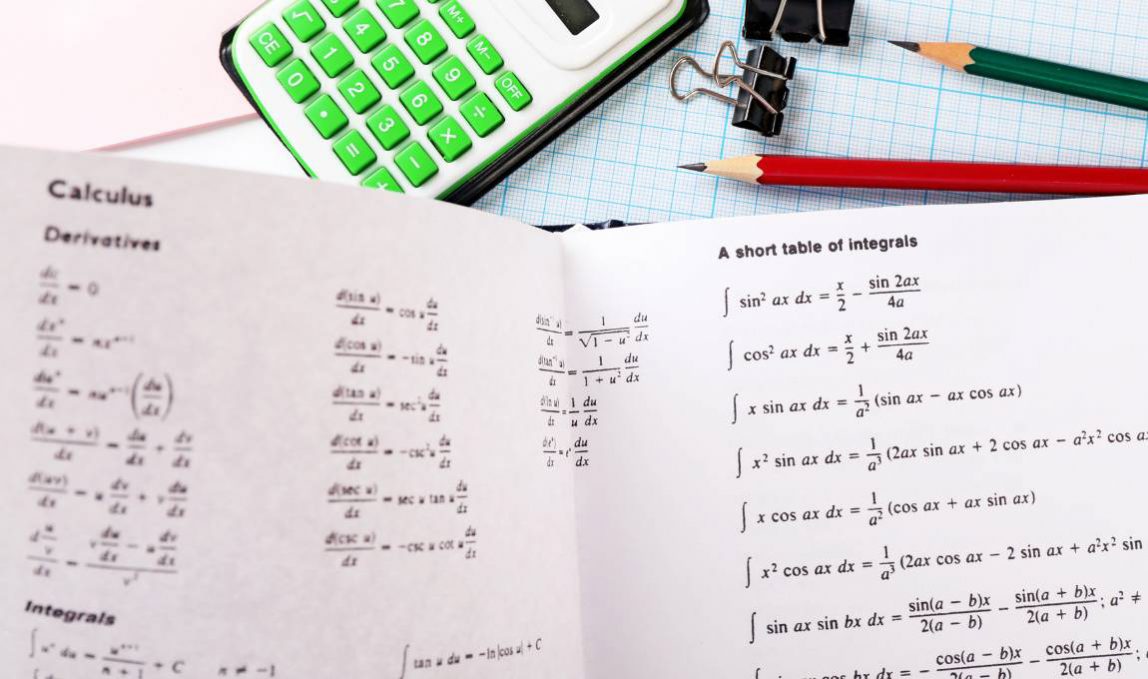 CE √ 7 M+
0 1 4 8 M−
• 2 5 9 OFF
= 3 6 ÷
+ − ×
Calculus
Derivatives
dc/dx = 0
dxⁿ/dx = nxⁿ⁻¹
duⁿ/dx = nuⁿ⁻¹(du/dx)
d(u + v)/dx = du/dx + dv/dx
d(uv)/dx = u dv/dx + v du/dx
d(u/v)/dx = (v du/dx − u dv/dx)/v²
Integrals
∫ uⁿ du = uⁿ⁺¹/(n + 1) + C n ≠ −1
d(sin u)/dx = cos u du/dx
d(cos u)/dx = −sin u du/dx
d(tan u)/dx = sec²u du/dx
d(cot u)/dx = −csc²u du/dx
d(sec u)/dx = sec u tan u du/dx
d(csc u)/dx = −csc u cot u du/dx
∫ tan u du = −ln|cos u| + C
d(sin⁻¹ u)/dx = 1/√(1 − u²) du/dx
d(tan⁻¹ u)/dx = 1/(1 + u²) du/dx
d(ln u)/dx = 1/u du/dx
d(eᵘ)/dx = eᵘ du/dx
A short table of integrals
∫ sin² ax dx = x/2 − sin 2ax/4a
∫ cos² ax dx = x/2 + sin 2ax/4a
∫ x sin ax dx = 1/a² (sin ax − ax cos ax)
∫ x² sin ax dx = 1/a³ (2ax sin ax + 2 cos ax − a²x² cos a
∫ x cos ax dx = 1/a² (cos ax + ax sin ax)
∫ x² cos ax dx = 1/a³ (2ax cos ax − 2 sin ax + a²x² sin
∫ sin ax sin bx dx = sin(a − b)x/2(a − b) − sin(a + b)x/2(a + b) ; a² ≠
cos bx dx = − cos(a − b)x/2(a − b) − cos(a + b)x/2(a + b) ;